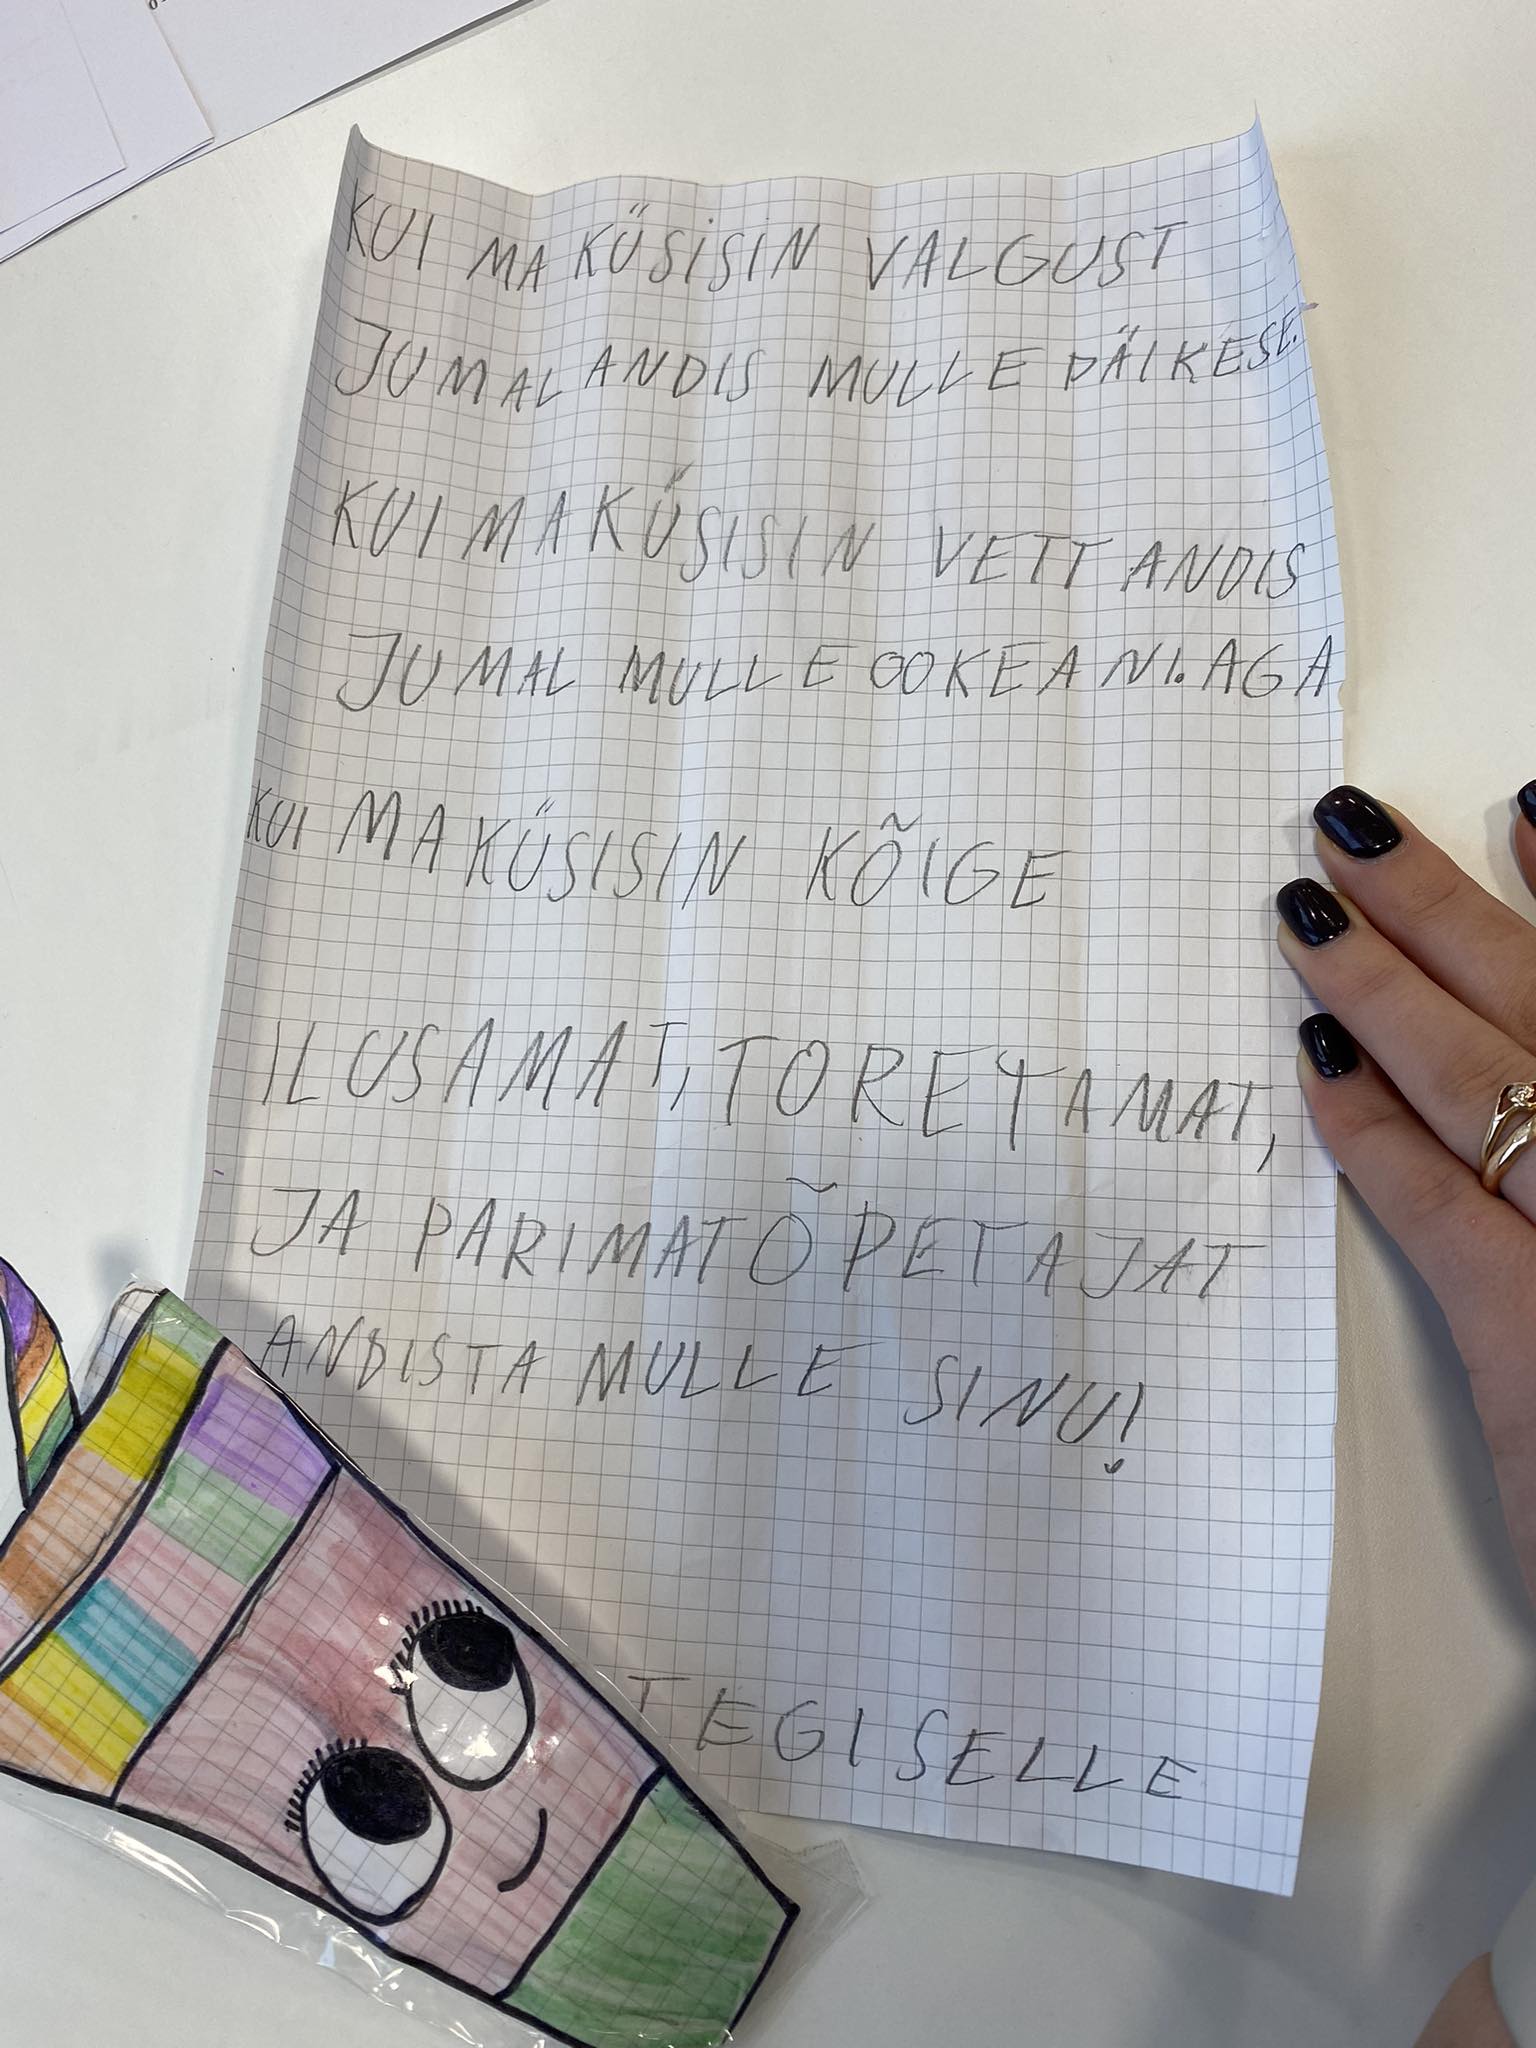 KUI MA KÜSISIN VALGUST
JUMAL ANDIS MULLE PÄIKESE.
KUI MA KÜSISIN VETT ANDIS
JUMAL MULLE OOKEANI. AGA
KUI MA KÜSISIN KÕIGE
ILUSAMAT, TORETAMAT,
JA PARIMAT ÕPETAJAT
ANDIS TA MULLE SINU!
TEGI SELLE